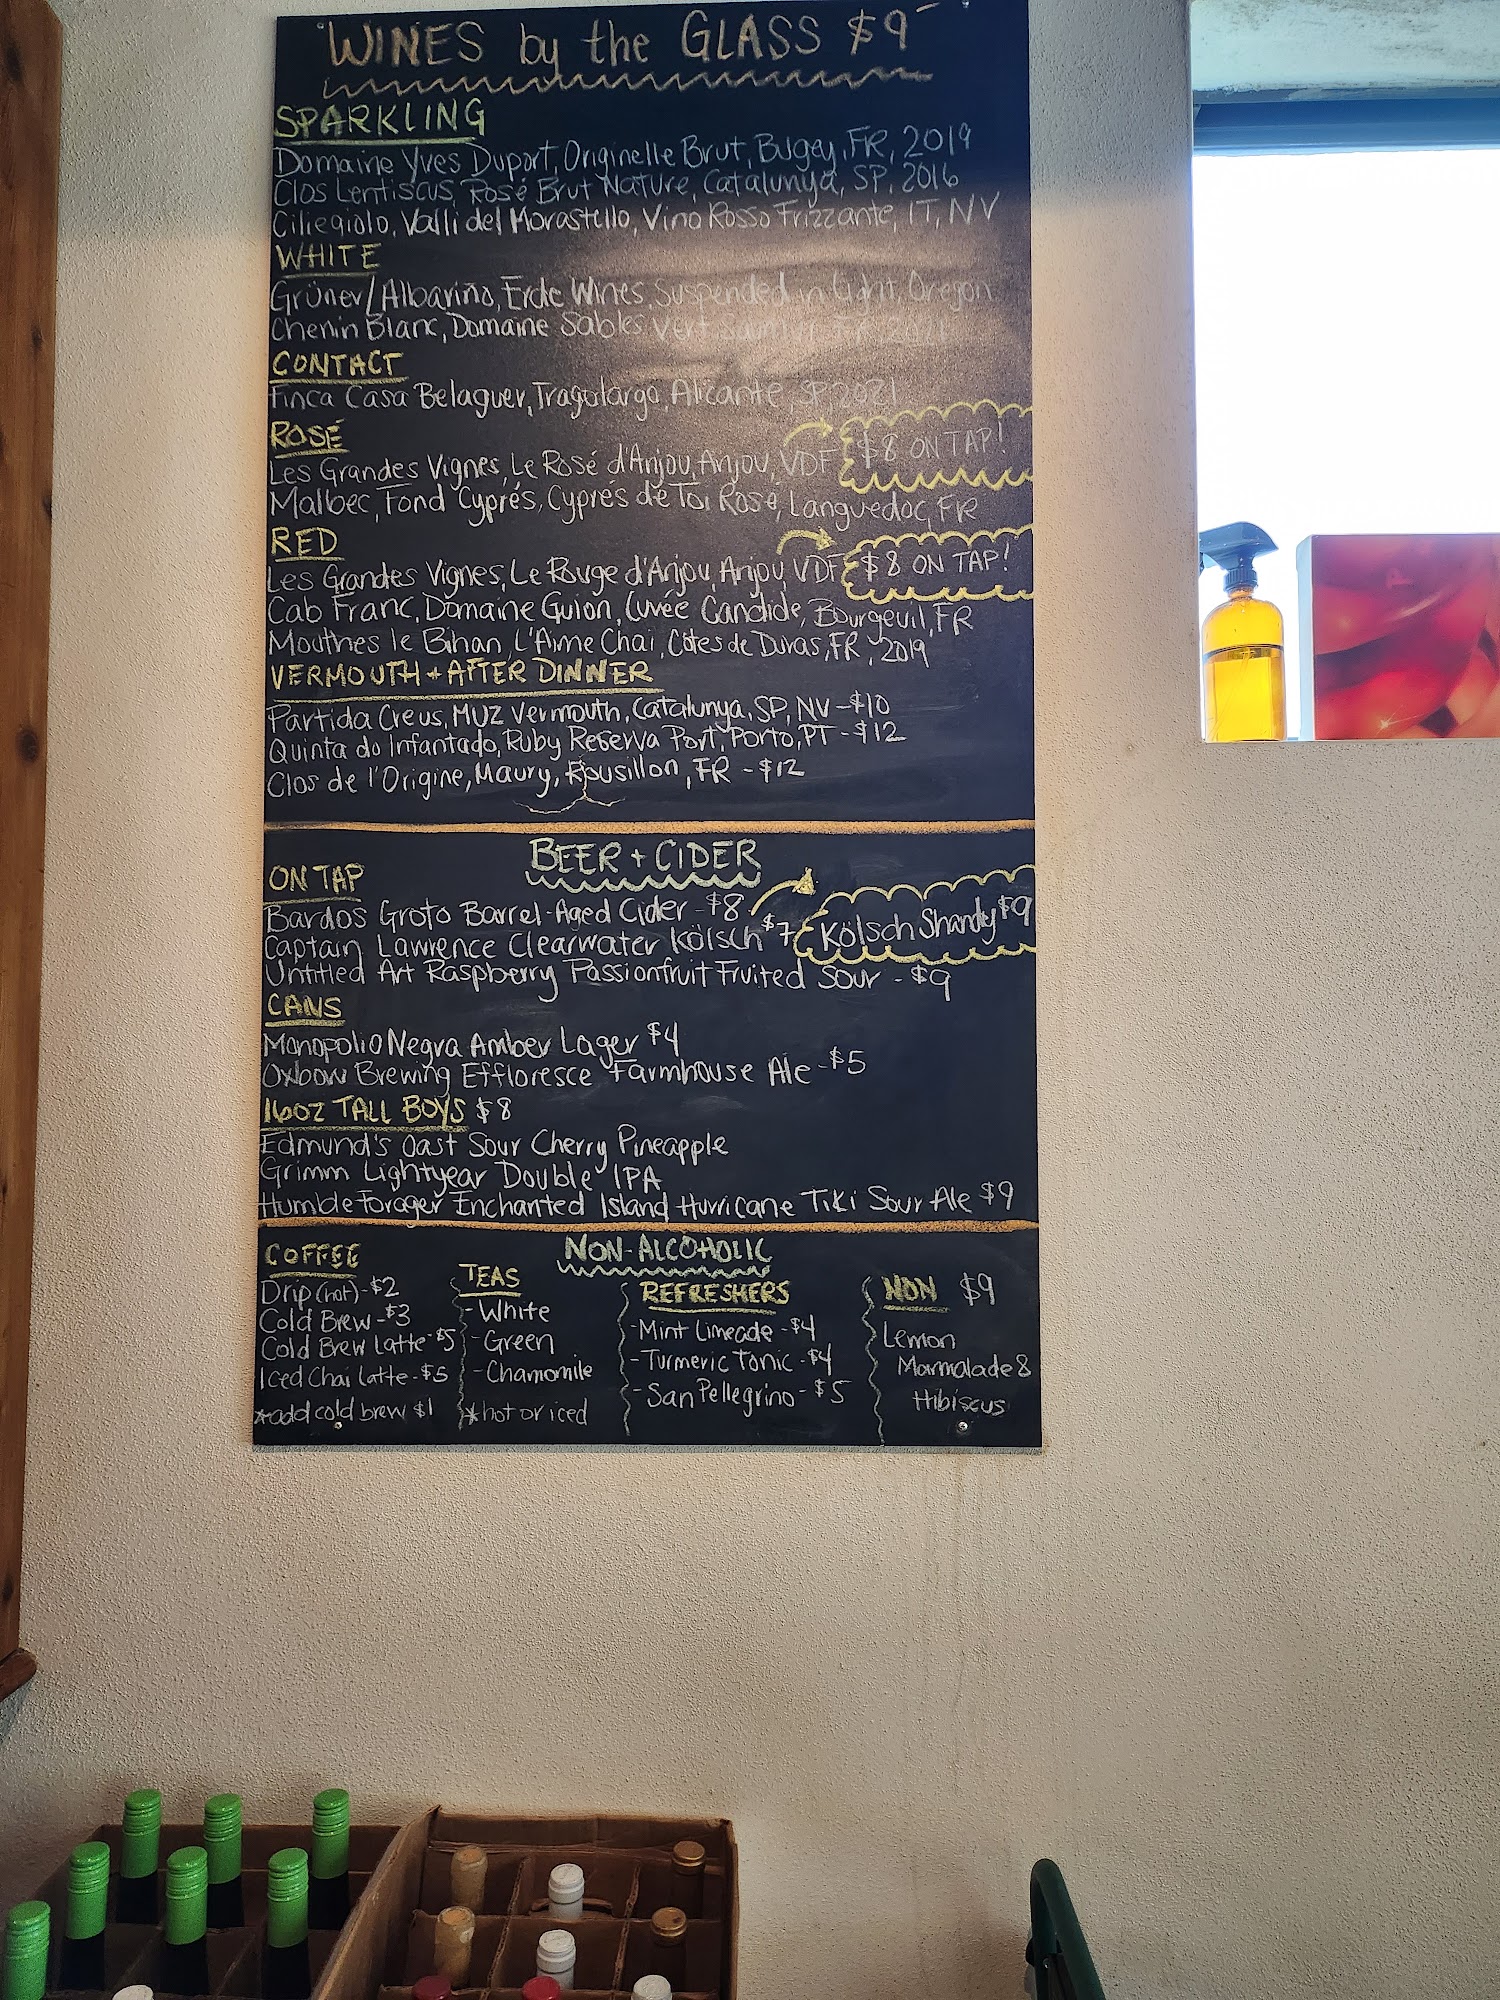 WINES by the GLASS $9
SPARKLING
Domaine Yves Duport, Originelle Brut, Bugey, FR, 2019
Clos Lentiscus, Rosé Brut Nature, Catalunya, SP, 2016
Ciliegiolo, Valli del Morastello, Vino Rosso Frizzante, IT, NV
WHITE
Grüner/Albariño, Erde Wines, Suspended in Light, Oregon
Chenin Blanc, Domaine Sables Vert
CONTACT
Finca Casa Belaguer, Tragolargo, Alicante, SP, 2021
ROSÉ
Les Grandes Vignes, Le Rosé d'Anjou, Anjou, VDF $8 ON TAP!
Malbec, Fond Cyprés, Cyprés de Toi Rosé, Languedoc, FR
RED
Les Grandes Vignes, Le Rouge d'Anjou, Anjou VDF $8 ON TAP!
Cab Franc, Domaine Guion, Cuvée Candide, Bourgeuil, FR
Mouthes le Bihan, L'Aime Chai, Côtes de Duras, FR, 2019
VERMOUTH + AFTER DINNER
Partida Creus, MUZ Vermouth, Catalunya, SP, NV - $10
Quinta do Infantado, Ruby Reserva Port, Porto, PT - $12
Clos de l'Origine, Maury, Rousillon, FR - $12
BEER + CIDER
ON TAP
Bardos Groto Barrel-Aged Cider - $8
Captain Lawrence Clearwater Kölsch $7 Kölsch Shandy $9
Untitled Art Raspberry Passionfruit Fruited Sour - $9
CANS
Monopolio Negra Amber Lager $4
Oxbow Brewing Effloresce Farmhouse Ale - $5
16oz TALL BOYS $8
Edmund's Oast Sour Cherry Pineapple
Grimm Lightyear Double IPA
Humble Forager Enchanted Island Hurricane Tiki Sour Ale $9
NON-ALCOHOLIC
COFFEE
Drip (hot) - $2
Cold Brew - $3
Cold Brew Latte - $5
Iced Chai Latte - $5
*add cold brew $1
TEAS
- White
- Green
- Chamomile
*hot or iced
REFRESHERS
- Mint Limeade - $4
- Turmeric Tonic - $4
- San Pellegrino - $5
NON $9
Lemon
Marmalade &
Hibiscus